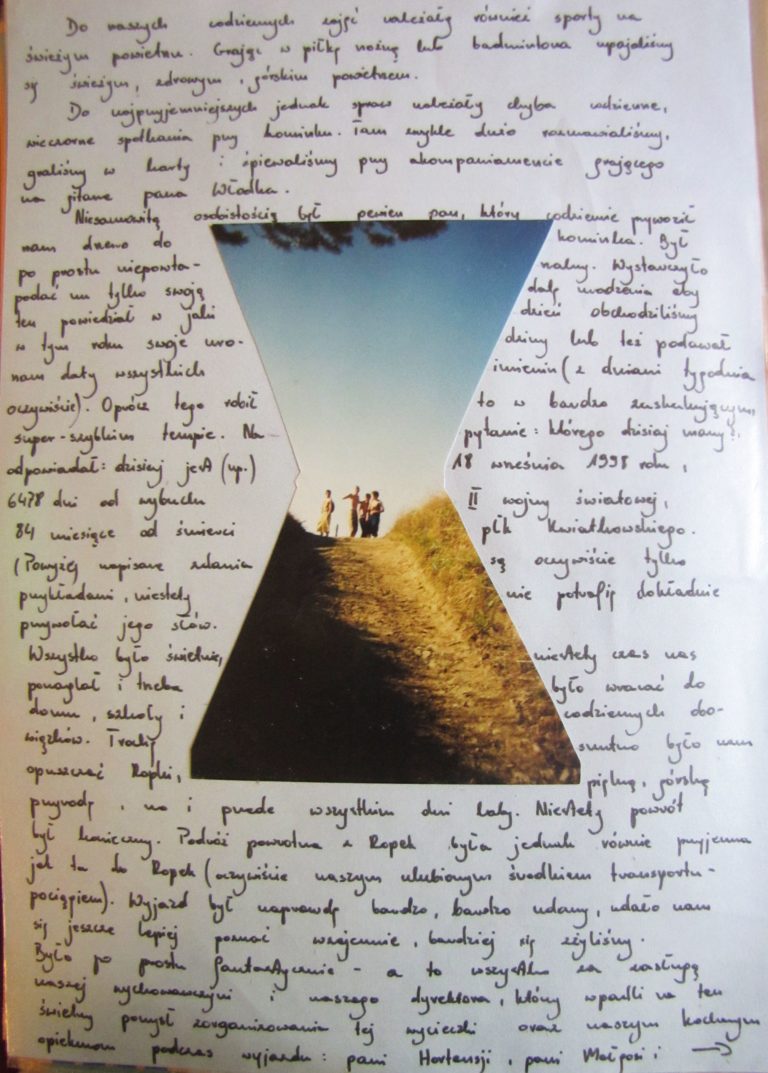 Do naszych codziennych zajęć należały również sporty na
świeżym powietrzu. Grając w piłkę nożną lub badmintona upajaliśmy
się świeżym, zdrowym, górskim powietrzem.
Do najprzyjemniejszych jednak spraw należały chyba codzienne,
wieczorne spotkania przy kominku. Tam zwykle dużo rozmawialiśmy,
graliśmy w karty i śpiewaliśmy przy akompaniamencie grającego
na gitarze pana Władka.
Niesamowitą osobistością był pewien pan, który codziennie przywoził
nam drewno do kominka. Był
po prostu niepowta- rzalny. Wystarczyło
podać mu tylko swoją datę urodzenia aby
ten powiedział w jaki dzień obchodziliśmy
w tym roku swoje uro- dziny lub też podawał
nam daty wszystkich imienin (z dniami tygodnia
oczywiście). Oprócz tego robił to w bardzo zaskakującym,
super-szybkim tempie. Na pytanie: którego dzisiaj mamy?,
odpowiadał: dzisiaj jest (np.) 18 września 1998 roku,
6478 dni od wybuchu II wojny światowej,
84 miesiące od śmierci płk Kwiatkowskiego.
(Powyżej napisane zdania są oczywiście tylko
przykładami, niestety nie potrafię dokładnie
przywołać jego słów.
Wszystko było świetnie, niestety czas nas
ponaglał i trzeba było wracać do
domu, szkoły i codziennych obo-
wiązków. Trochę smutno było nam
opuszczać Ropki, piękną, górską
przyrodę, no i przede wszystkim dni laby. Niestety powrót
był konieczny. Podróż powrotna z Ropek była jednak równie przyjemna
jak ta do Ropek (oczywiście naszym ulubionym środkiem transportu -
pociągiem). Wyjazd był naprawdę bardzo, bardzo udany, udało nam
się jeszcze lepiej poznać wzajemnie, bardziej się zżyliśmy.
Było po prostu fantastycznie - a to wszystko za zasługą
naszej wychowawczyni i naszego dyrektora, który wpadli na ten
świetny pomysł zorganizowania tej wycieczki oraz naszym kochanym
opiekunom podczas wyjazdu: pani Hortensji, pani Małgosi i →